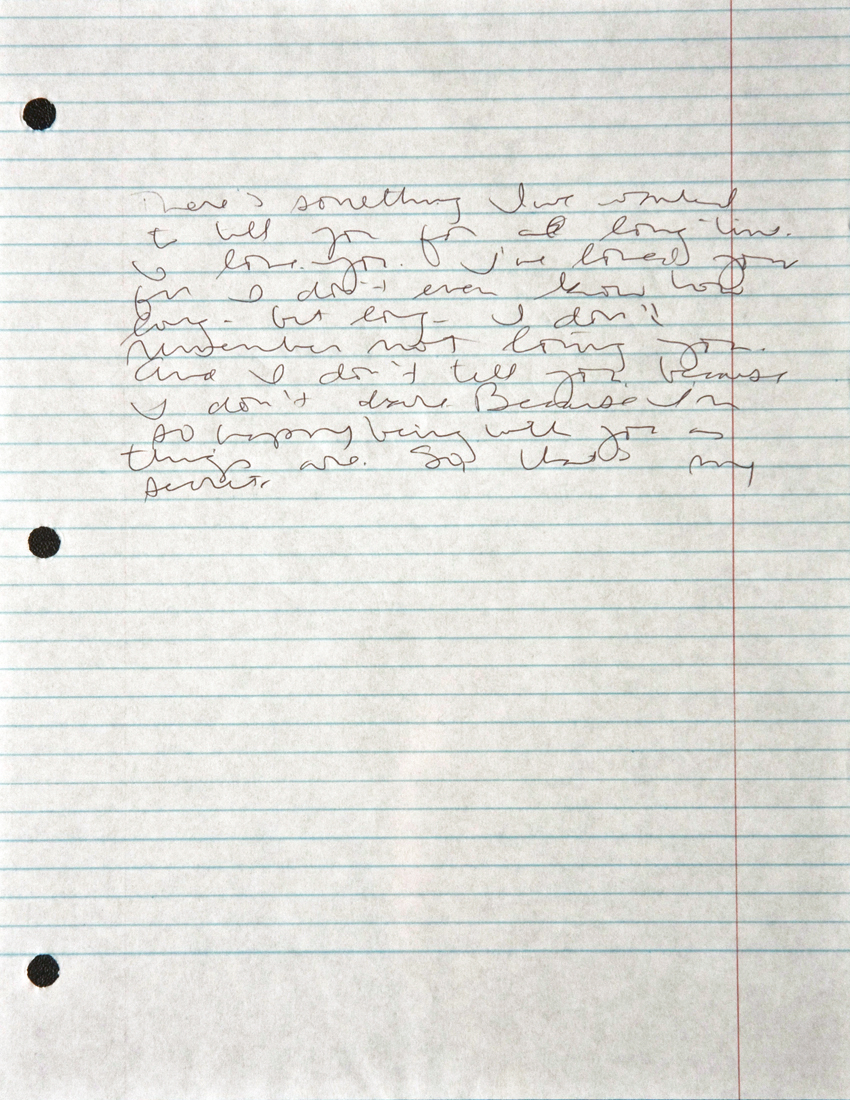 There's something I've wanted
to tell you for a long time.
I love you. I've loved you
for I don't even know how
long - but long - I don't
remember not loving you.
And I don't tell you because
I don't dare. Because I'm
so happy being with you as
things are. So, that's my
secret.